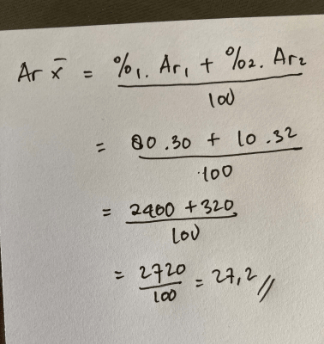 Ar x̄ = %1. Ar1 + %2. Ar2
100
= 80.30 + 10.32
100
= 2400 + 320
100
= 2720
100
= 27,2 //